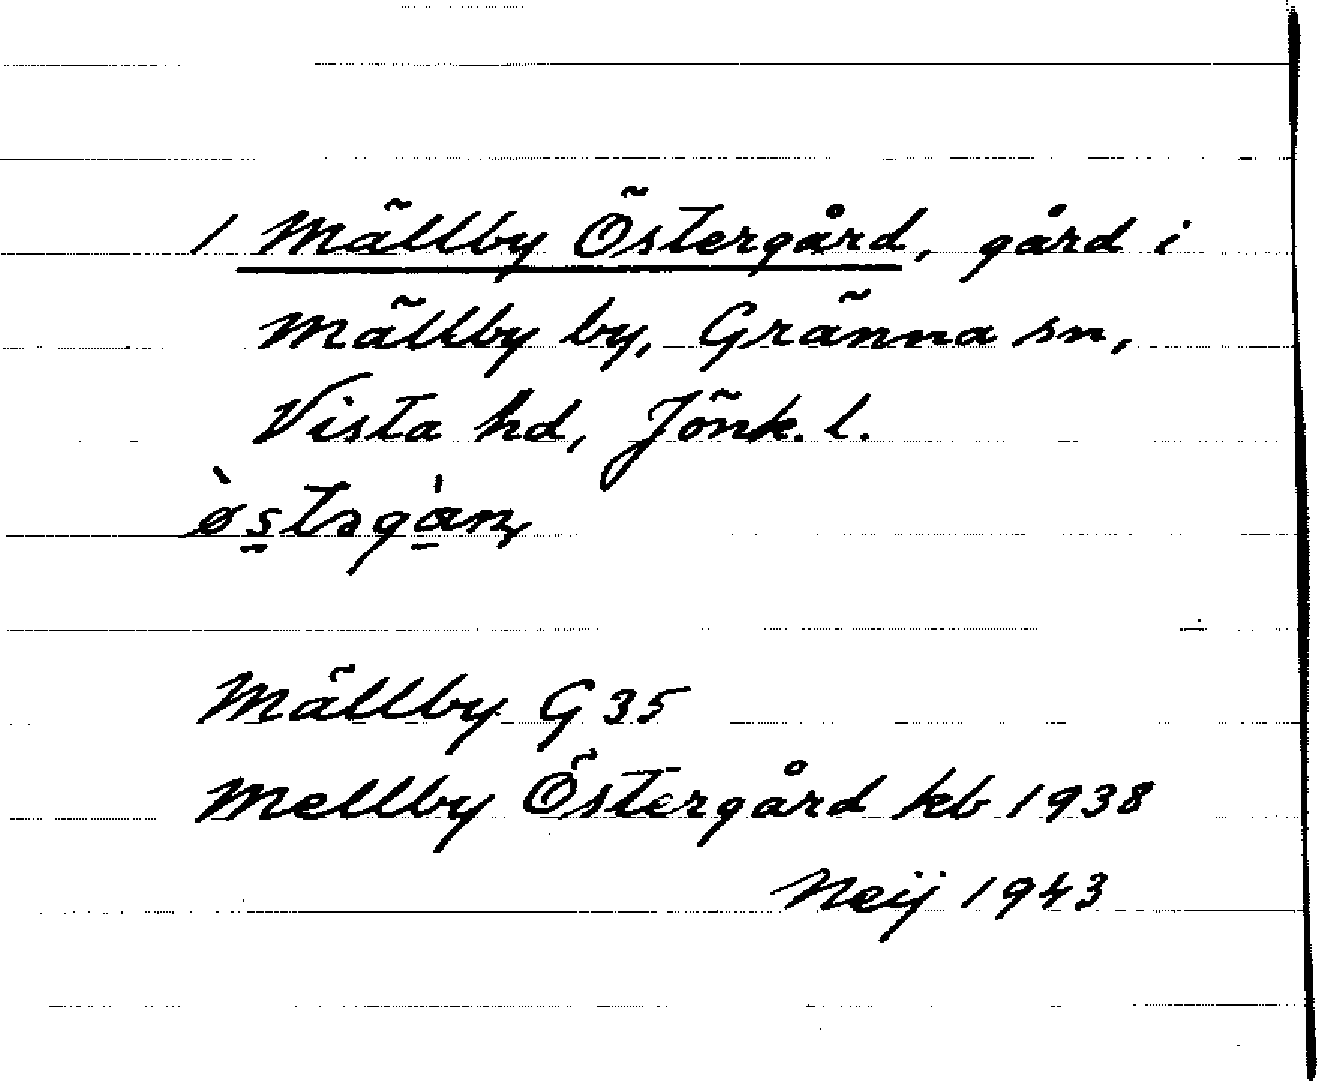 / Mällby Östergård, gård i
Mällby by, Gränna sn,
Vista hd, Jönk. l.
Mällby G 35
Mellby Östergård kb 1938
Neij 1943